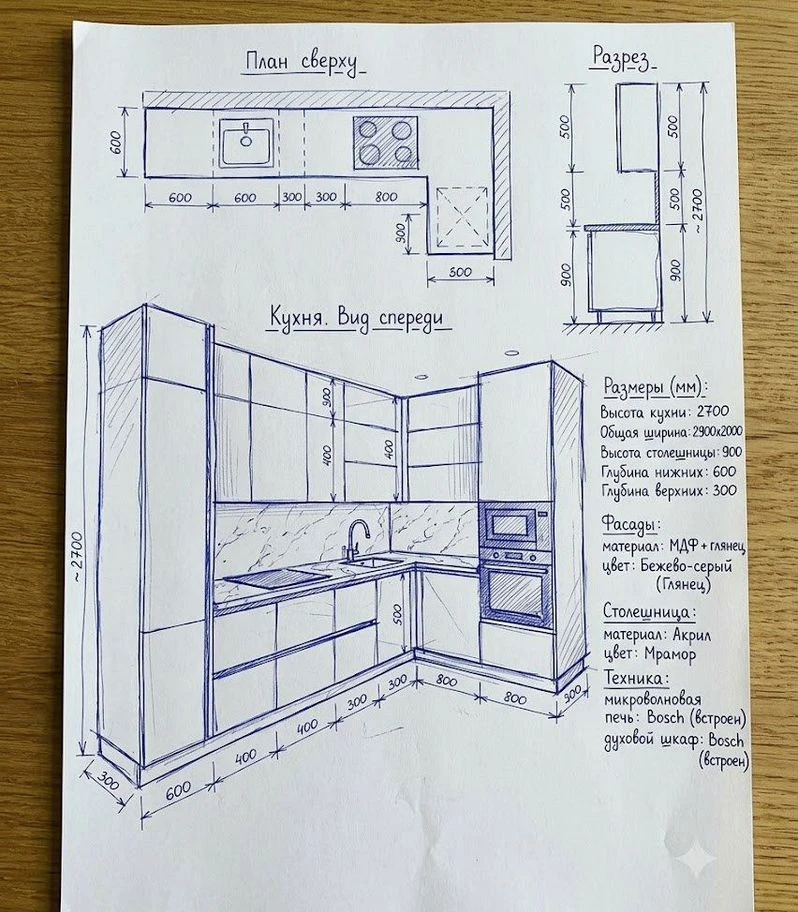 План сверху
600
600
600
300
300
800
900
300
Разрез
500
500
900
500
500
900
~2700
Кухня. Вид спереди
~2700
900
400
400
500
300
600
400
400
300
300
800
800
900
Размеры (мм):
Высота кухни: 2700
Общая ширина: 2900x2000
Высота столешницы: 900
Глубина нижних: 600
Глубина верхних: 300
Фасады:
материал: МДФ + глянец
цвет: Бежево-серый
(Глянец)
Столешница:
материал: Акрил
цвет: Мрамор
Техника:
микроволновая
печь: Bosch (встроен)
духовой шкаф: Bosch
(встроен)